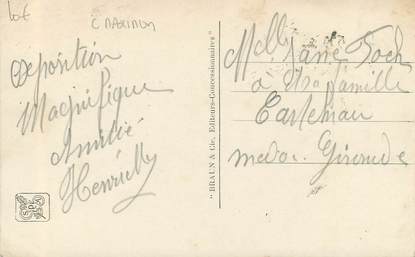 10€
C MAXIMUM
Exposition
Magnifique
Amitié
Henriette
"BRAUN & Cie, Editeurs-Concessionnaires"
Melle Jane
à
famille
Castelnau
medoc. Gironde